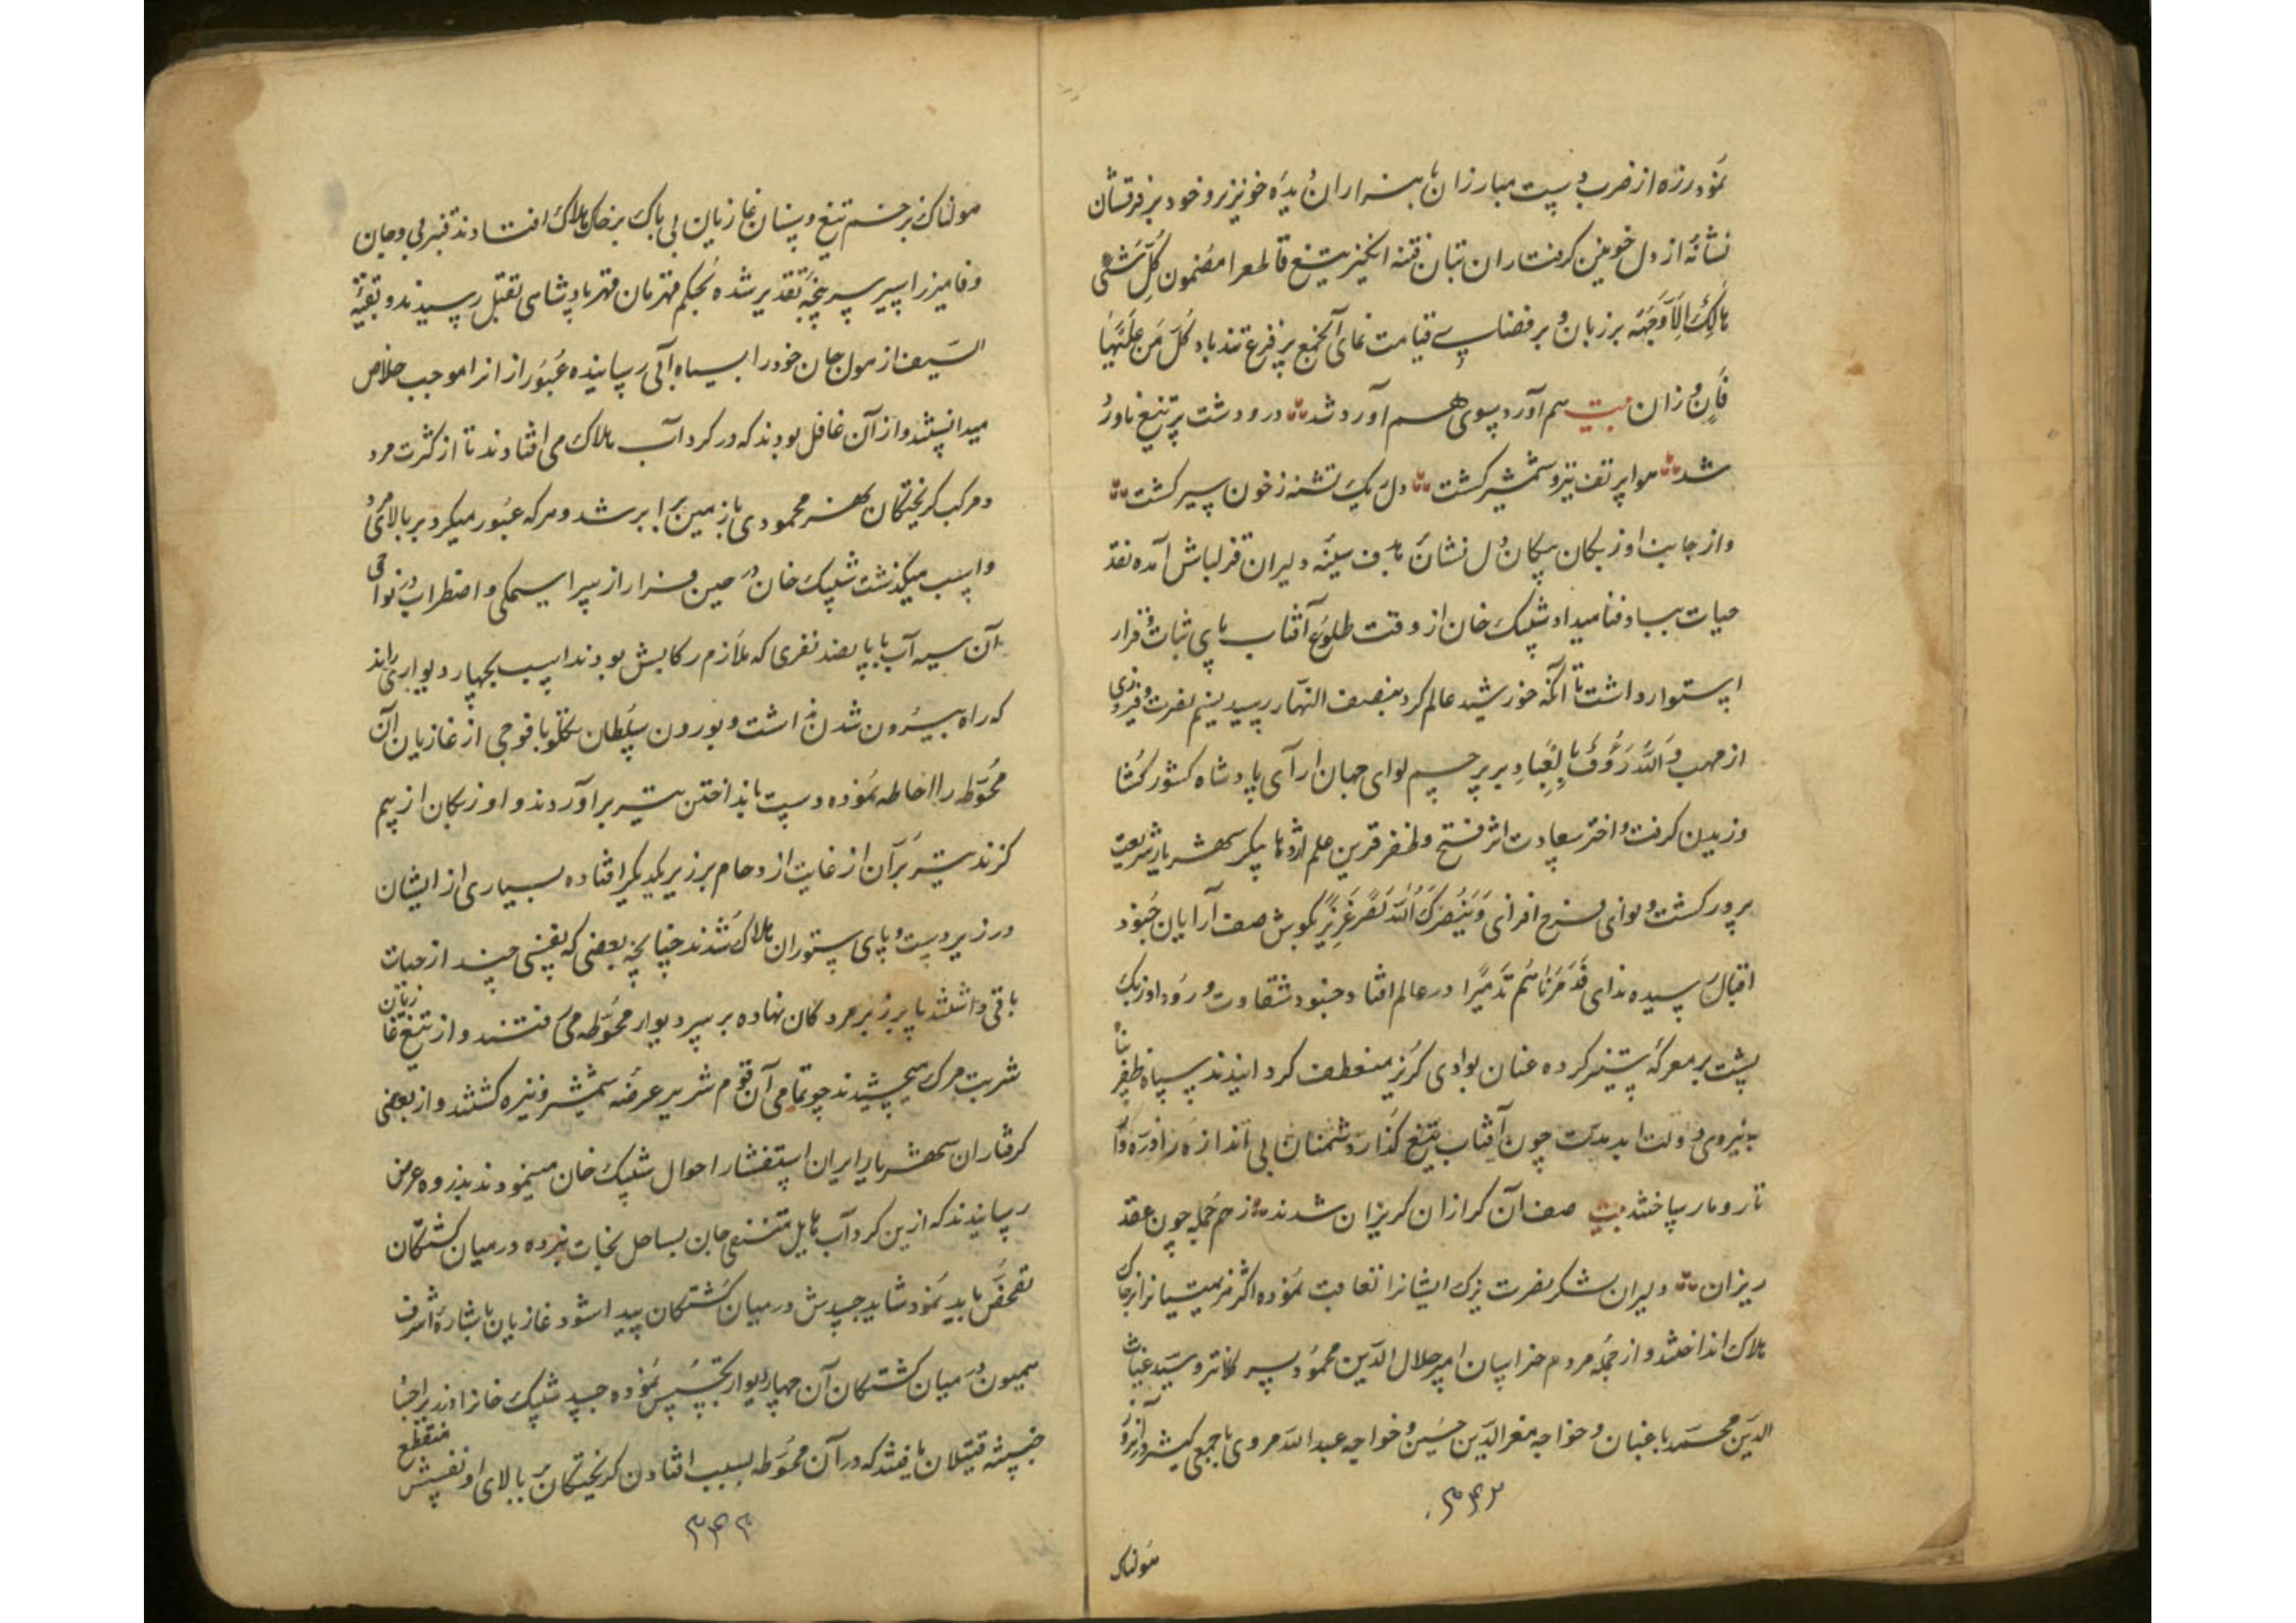 نمود زره از ضرب دست مبارزان با هزاران دیده خونریز و خود بر فرقشان
نشانهٔ از دل خونین گرفتاران تبان فتنه انگیز تیغ قاطع را مضمون کل شیٔ
هالک الا وجهه بر زبان و بر فضای قیامت نمای آنجمع پر فزع تندباد کل من علیها
فان وزان بیت هم آورد سوی هم آورد شد در و دشت پر تیغ ناورد
شد هوا پر تف تیر و شمشیر گشت دل یک تشنه ز خون سیر گشت
و از جانب اوزبکان پیکان دل نشان هدف سینه دلیران قزلباش آمده نقد
حیات بباد فنا میداد شیبک خان از وقت طلوع آفتاب پای ثبات و قرار
استوار داشت تا آنکه خورشید عالم گرد بنصف النهار رسید نسیم نصرت و فیروزی
از مهب و الله رؤف بالعباد بر پرچم لوای جهان آرای پادشاه کشور گشا
وزیدن گرفت و اختر سعادت اثر فتح و ظفر قرین علم اژدها پیکر شهریار شریعت
پرور گشت و نوای فرح افزای و ینصرک الله نصرا عزیزا بگوش صف آرایان جنود
اقبال رسیده ندای فدمرناهم تدمیرا در عالم افتاد جنود شقاوت ورود اوزبک
پشت بر معرکه ستیز کرده عنان بوادی گریز منعطف گردانیدند سپاه ظفر پناه
بنیروی دولت ابد مدت چون آفتاب تیغ گذار دشمنان بی اندازه را ذره وار
تار و مار ساختند بیت صف آن گرازان گریزان شدند ز هم جمله چون عقد
ریزان دلیران لشکر نصرت یزک ایشانرا تعاقب نموده اکثر هزیمتیانرا بر خاک
هلاک انداختند و از جمله مردم خراسان امیر جلال الدین محمود پسر کلانتر و سید غیاث
الدین محمد باغبان و خواجه معز الدین حسین و خواجه عبدالله مروی با جمعی کثیر در آنروز
۳۴۲
هولناک
هولناک بزخم تیغ و سنان غازیان بی باک بر خاک هلاک افتادند قنبر بی و جان
وفا میرزا اسیر سر پنجه تقدیر شده بحکم قهرمان قهر پادشاهی بقتل رسیدند و بقیة
السیف از هول جان خود را بسیاه آبی رسانیده عبور از انرا موجب خلاص
میدانستند و از آن غافل بودند که در گرداب هلاک می افتادند تا از کثرت مرد
و مرکب گریختگان نهر محمودی با زمین برابر شد و هر که عبور میکرد بر بالای مرد
و اسب میگذشت شیبک خان در حین فرار از سراسیمگی و اضطراب در نواحی
آن سیه آب با پانصد نفری که ملازم رکابش بودند اسب بچهار دیواری راند
که راه بیرون شدن نداشت و بورون سلطان تکلو با فوجی از غازیان آن
محوطه را احاطه نموده دست بانداختن تیر برآوردند و اوزبکان از بیم
گزند تیر بران از غایت ازدحام بر زیر یکدیگر افتاده بسیاری از ایشان
در زیر دست و پای ستوران هلاک شدند چنانچه بعضی که نفسی چند از حیات
باقی داشتند پا بر زبر مردگان نهاده بر سر دیوار محوطه می رفتند و از تیغ غازیان
شربت مرگ میچشیدند چو تمامی آن قوم شریر عرضه شمشیر و نیزه گشتند و از بعضی
گرفتاران شهریار ایران استفسار احوال شیبک خان مینمودند بذروه عرض
رسانیدند که ازین گرداب هایل متنفسی جان بساحل نجات نبرده در میان کشتگان
تفحص باید نمود شاید جسدش در میان کشتگان پیدا شود غازیان باشاره اشرف
همیون در میان کشتگان آن چهار دیوار تجسس نموده جسد شیبک خانرا در زیر اجساد
خبیثه قتیلان یافتند که در آن محوطه بسبب افتادن گریختگان بر بالای او نفسش منقطع
۳۴۳